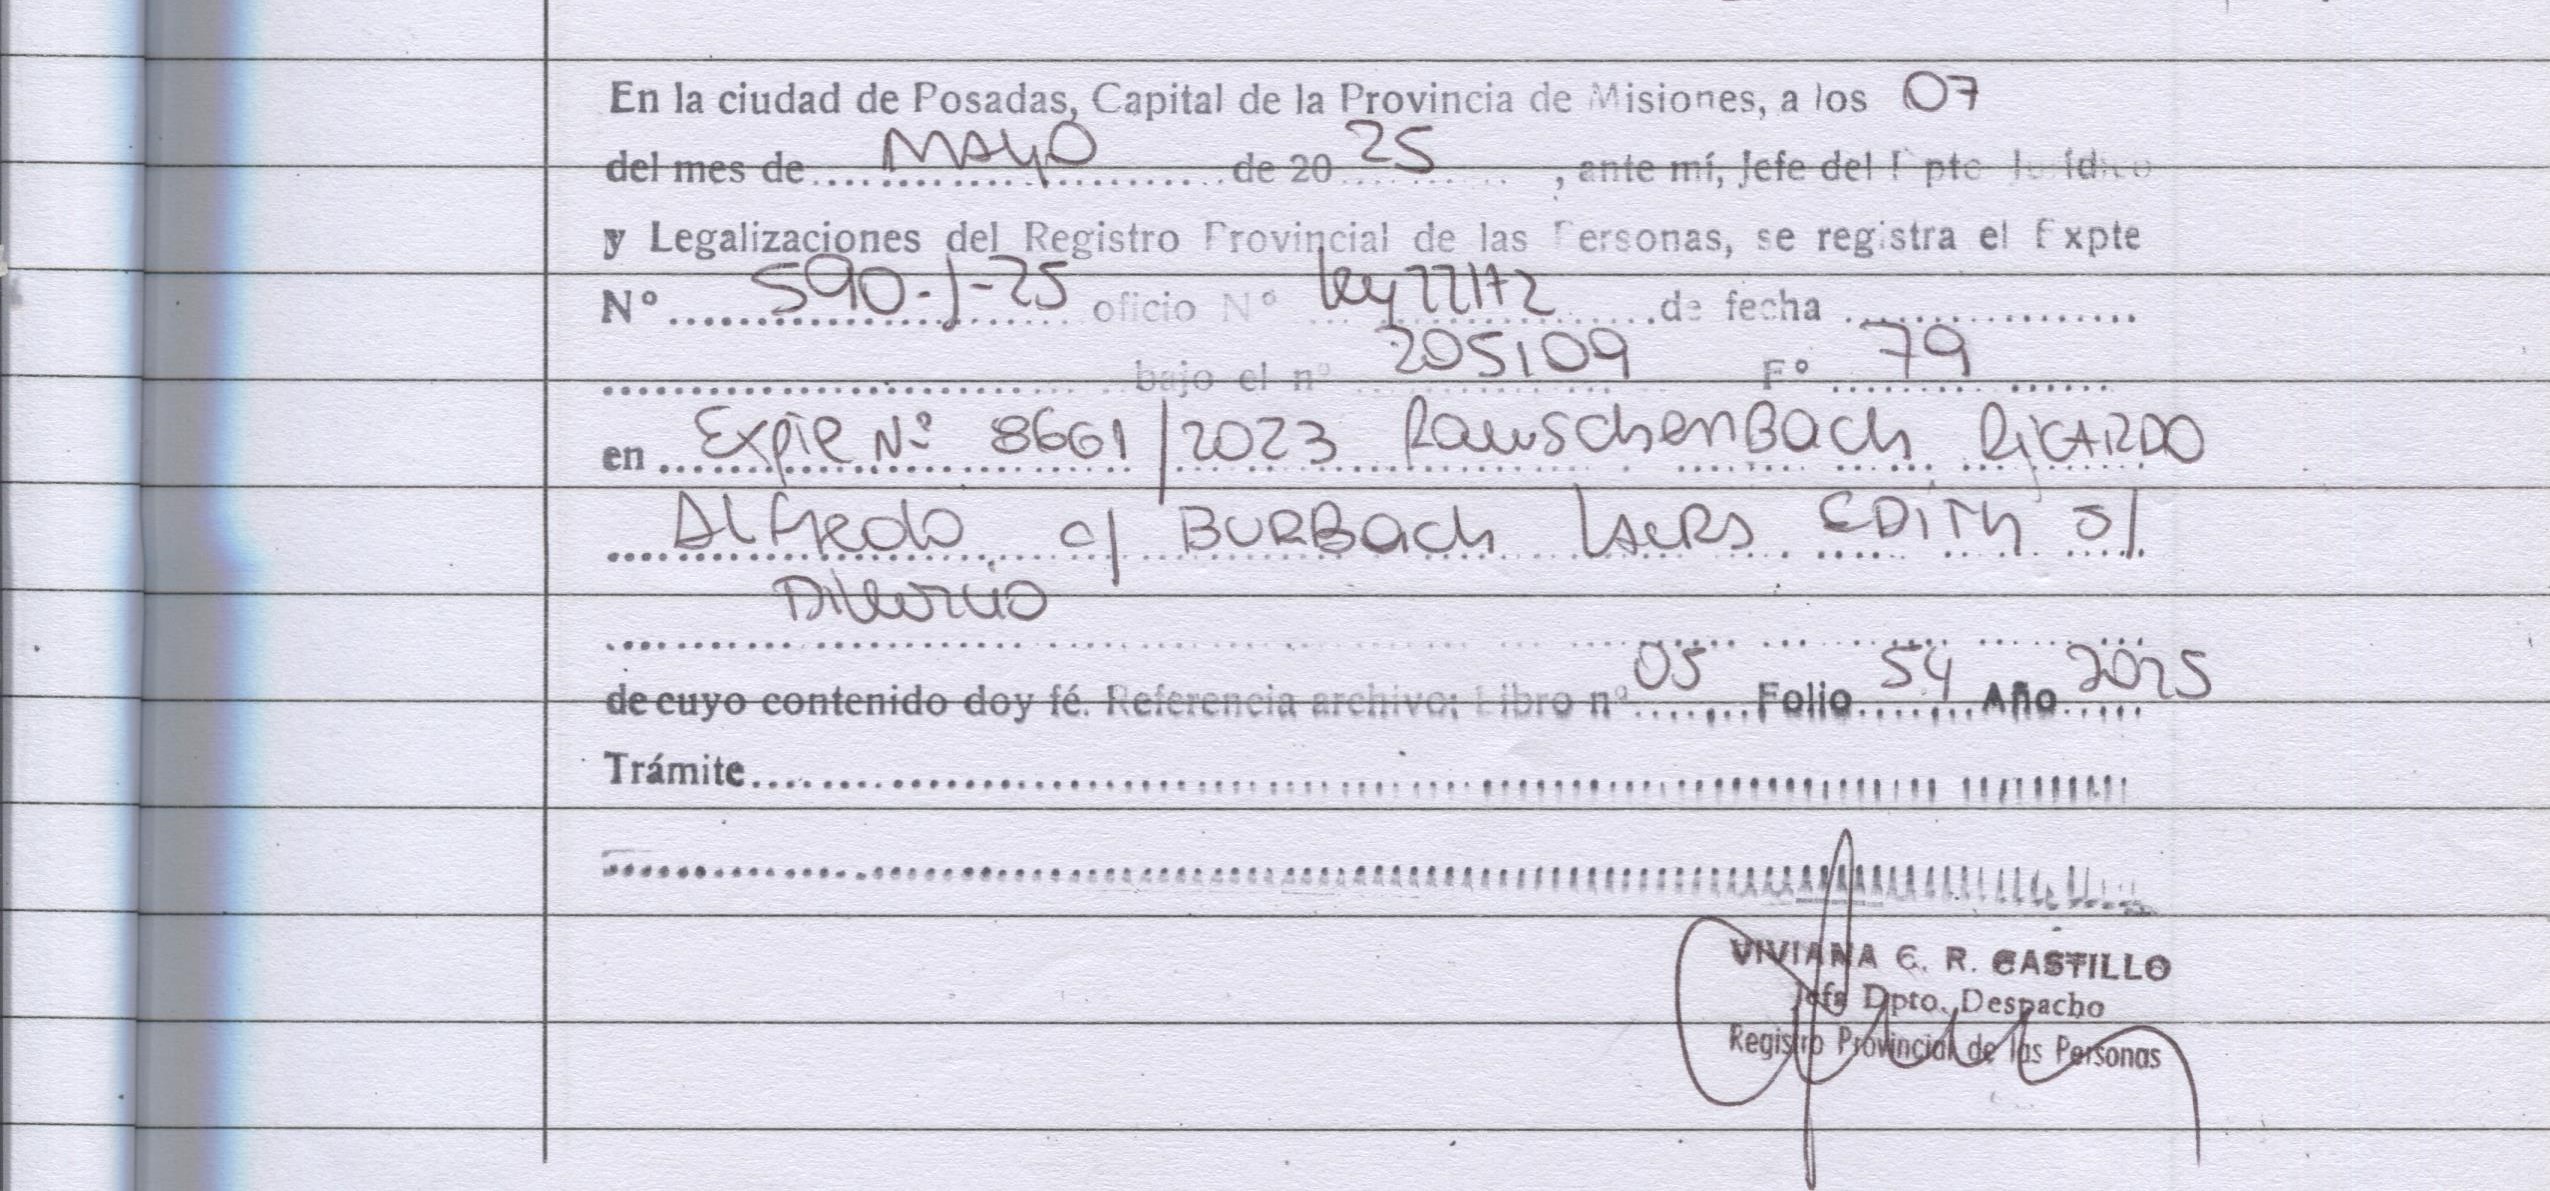 En la ciudad de Posadas, Capital de la Provincia de Misiones, a los 07
del mes de MAYO de 20 25, ante mí, Jefe del Dpto Jurídico
y Legalizaciones del Registro Provincial de las Personas, se registra el Expte
Nº 590-J-25 oficio Nº ley 22172 de fecha
bajo el nº 205109 Fº 79
en Expte Nº 8661/2023 RauschenBach RiCARDO
Alfredo c/ BURBach EDiTh s/
Divorcio
de cuyo contenido doy fé. Referencia archivo: Libro nº 05 Folio 54 Año 2025
Trámite
VIVIANA C. R. CASTILLO
Jefa Dpto. Despacho
Registro Provincial de las Personas